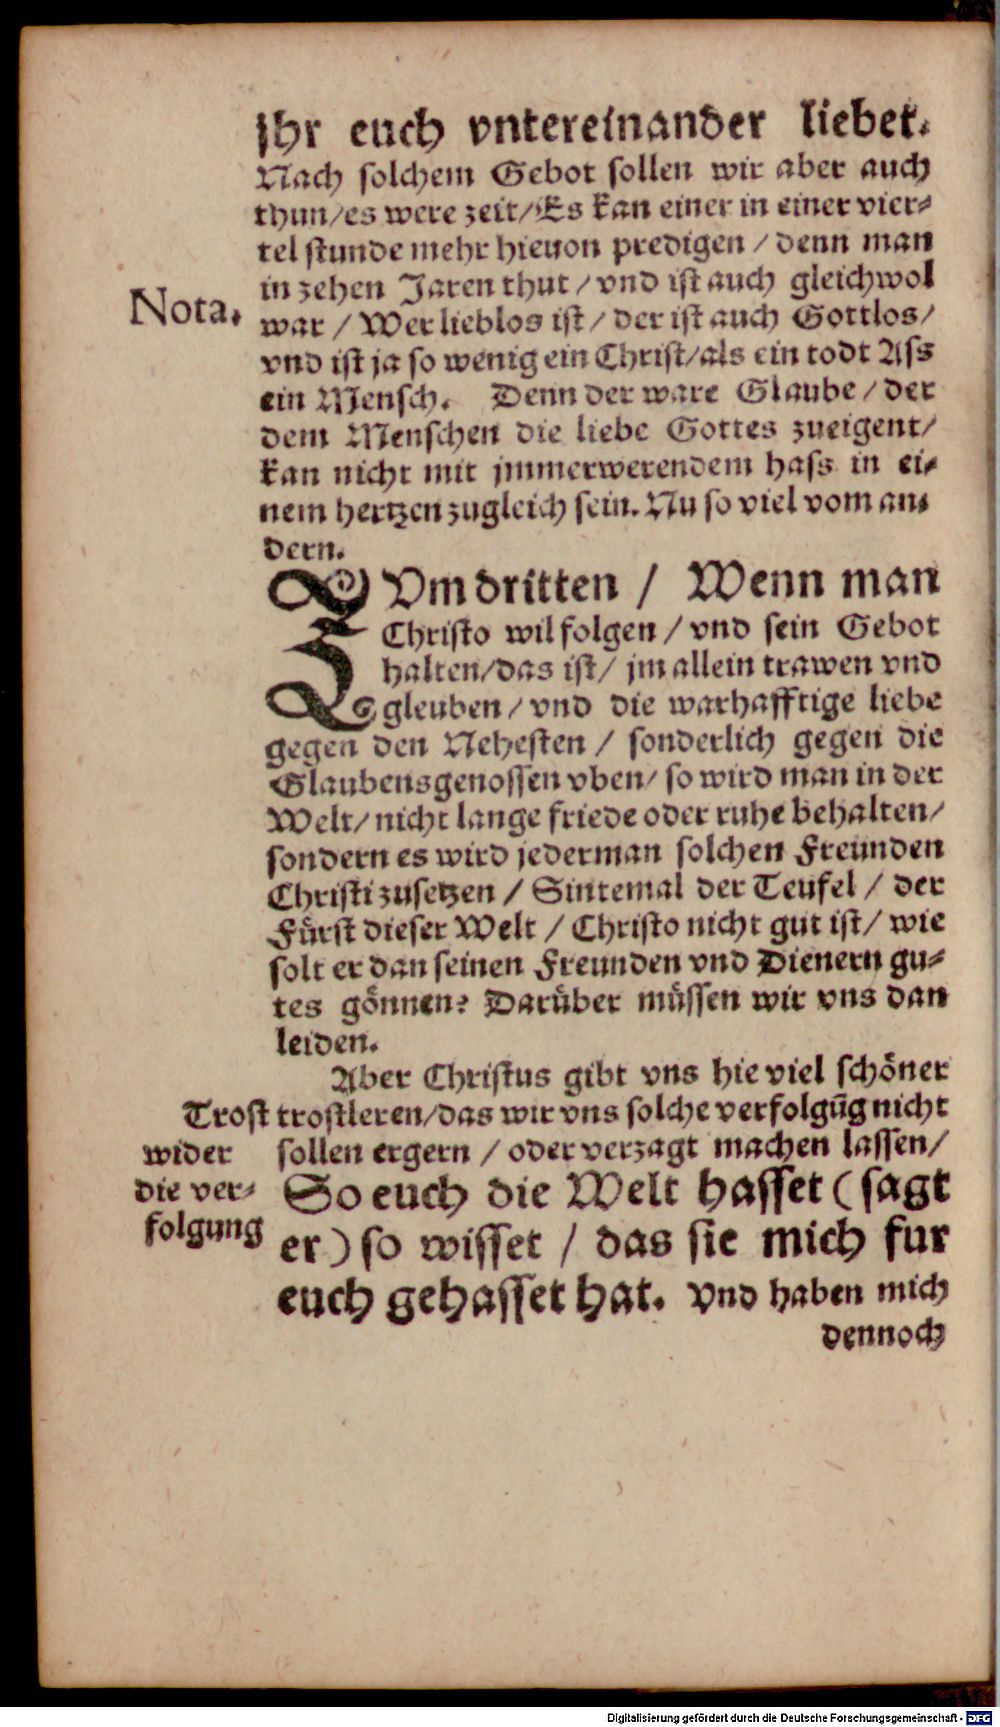 jhr euch vntereinander liebet.
Nach solchem Gebot sollen wir aber auch
thun/es were zeit/Es kan einer in einer vier-
tel stunde mehr hieuon predigen / denn man
in zehen Jaren thut / vnd ist auch gleichwol
Nota.
war / Wer lieblos ist / der ist auch Gottlos/
vnd ist ja so wenig ein Christ/als ein todt Ass
ein Mensch. Denn der ware Glaube / der
dem Menschen die liebe Gottes zueigent/
kan nicht mit jmmerwerendem hass in ei-
nem hertzen zugleich sein. Nu so viel vom an-
dern.
ZVm dritten / Wenn man
Christo wil folgen / vnd sein Gebot
halten/das ist/ jm allein trawen vnd
gleuben / vnd die warhafftige liebe
gegen den Nehesten / sonderlich gegen die
Glaubensgenossen vben/ so wird man in der
Welt/ nicht lange friede oder ruhe behalten/
sondern es wird jederman solchen Freunden
Christi zusetzen / Sintemal der Teufel / der
Fürst dieser Welt / Christo nicht gut ist/ wie
solt er dan seinen Freunden vnd Dienern gu-
tes gönnen? Darüber müssen wir vns dan
leiden.
Aber Christus gibt vns hie viel schöner
Trost
wider
die ver-
folgung
trostleren/das wir vns solche verfolgūg nicht
sollen ergern / oder verzagt machen lassen/
So euch die Welt hasset (sagt
er) so wisset / das sie mich fur
euch gehasset hat. Vnd haben mich
dennoch
Digitalisierung gefördert durch die Deutsche Forschungsgemeinschaft - DFG